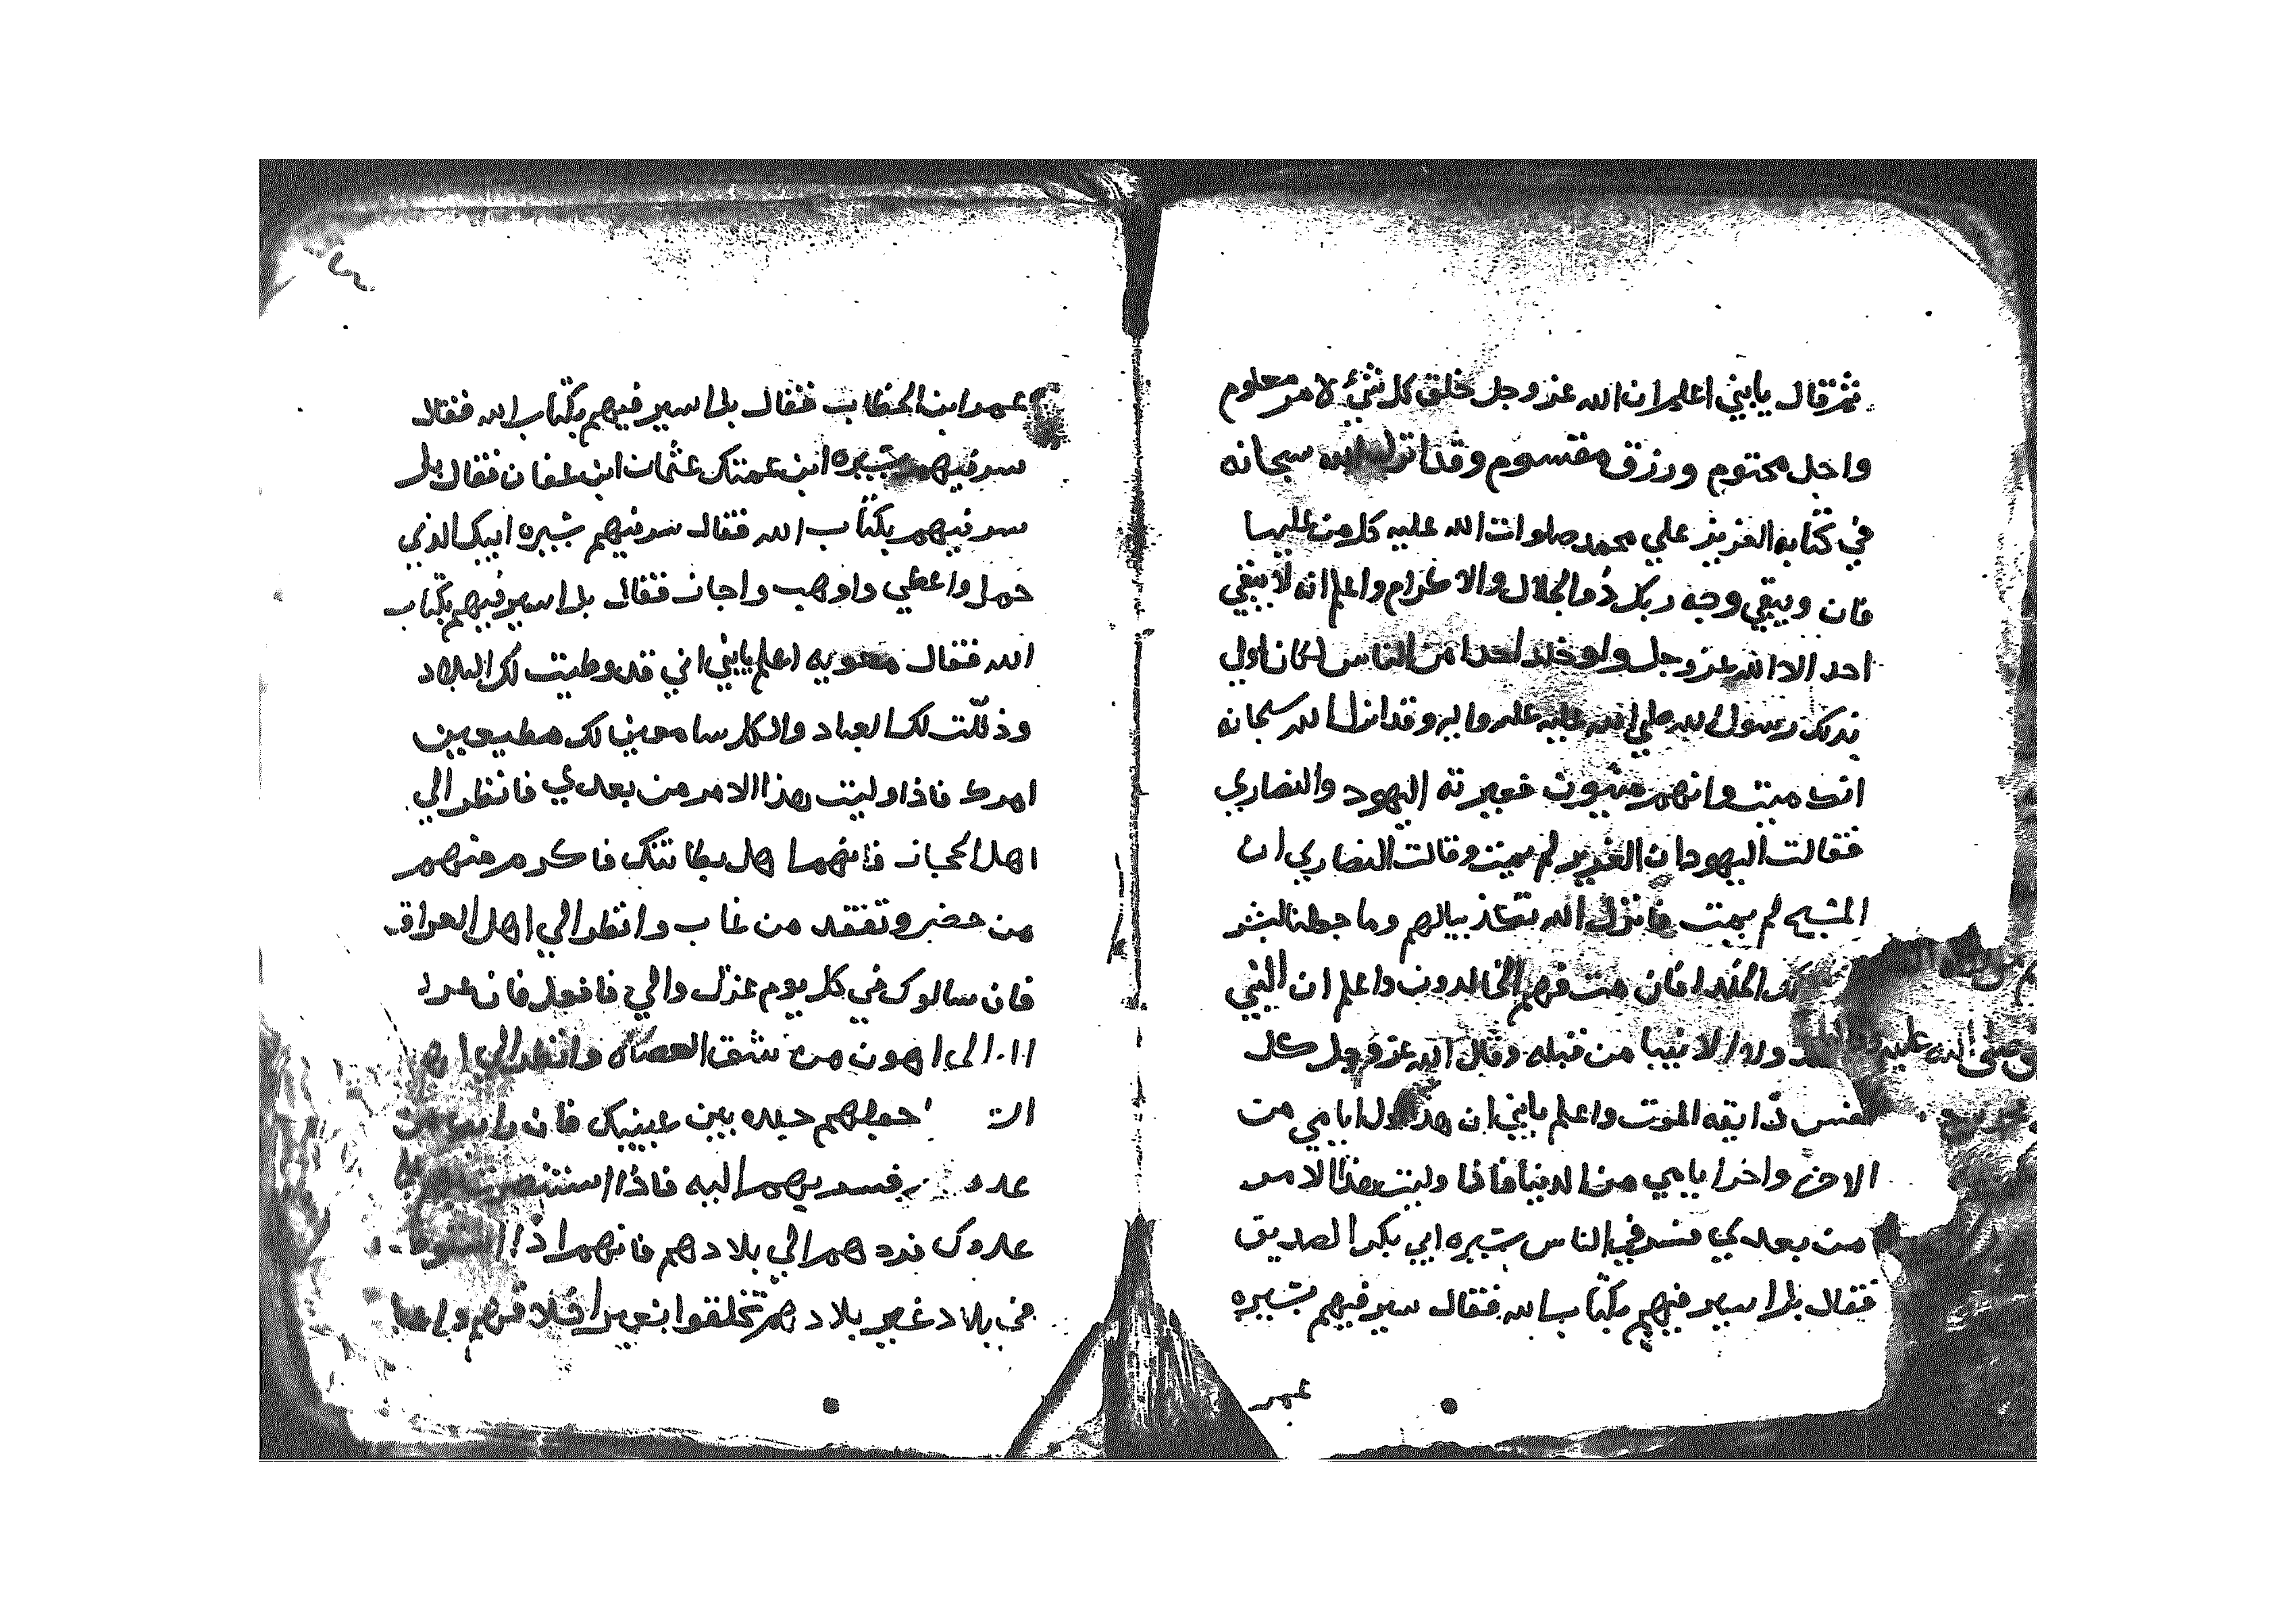 ثم قال يابني اعلم ان الله عز وجل خلق كل شئ لامر معلوم
واجل محتوم ورزق مقسوم وقد انزل الله سبحانه
في كتابه العزيز علي محمد صلوات الله عليه كل من عليها
فان ويبقي وجه ربك ذو الجلال والاكرام واعلم انه لا يبقي
احد الا الله عز وجل ولو خلد احدا من الناس لكان اولي
بذلك رسول الله صلي الله عليه واله وقد انزل الله سبحانه
انك ميت وانهم ميتون فعيرته اليهود والنصاري
فقالت اليهود ان العزير لم يمت وقالت النصاري ان
المسيح لم يمت فانزل الله وما جعلنا لبشر
الخلد افان مت فهم الخالدون واعلم ان النبي
ولا الانبيا من قبله وقال الله عز وجل كل
نفس ذايقه الموت واعلم يابني ان هذا اول ايامي من
الاخره واخر ايامي من الدنيا فاذا وليت هذا الامر
من بعدي فسر في الناس سيره ابي بكر الصديق
فقال بل اسير فيهم بكتاب الله فقال سير فيهم بسيره
عمر
عمر ابن الخطاب فقال بل اسير فيهم بكتاب الله فقال
سر فيهم بسيره ابن عمتك عثمان ابن عفان فقال بل
سر فيهم بكتاب الله فقال سر فيهم سيره ابيك الذي
حمل واعطي واوهب واجاز فقال بل اسير فيهم بكتاب
الله فقال معويه اعلم يابني اني قد وطيت لك البلاد
وذللت لك العباد والكل سامعين لك مطيعين
امرك فاذا وليت هذا الامر من بعدي فانظر الي
اهل الحجاز فانهما هل بطانتك فاكرم منهم
من حضر وتفقد من غاب وانظر الي اهل العراق
فان سالوك في كل يوم عزل والي فافعل فان عزل
اهون من شق العصاه وانظر الي
بين عينيك فان رابك من
اليه فاذا
عدوك فرد هم الي بلادهم فانهم اذا
في بلاد غير بلادهم تخلقوا بغير اخلاقهم